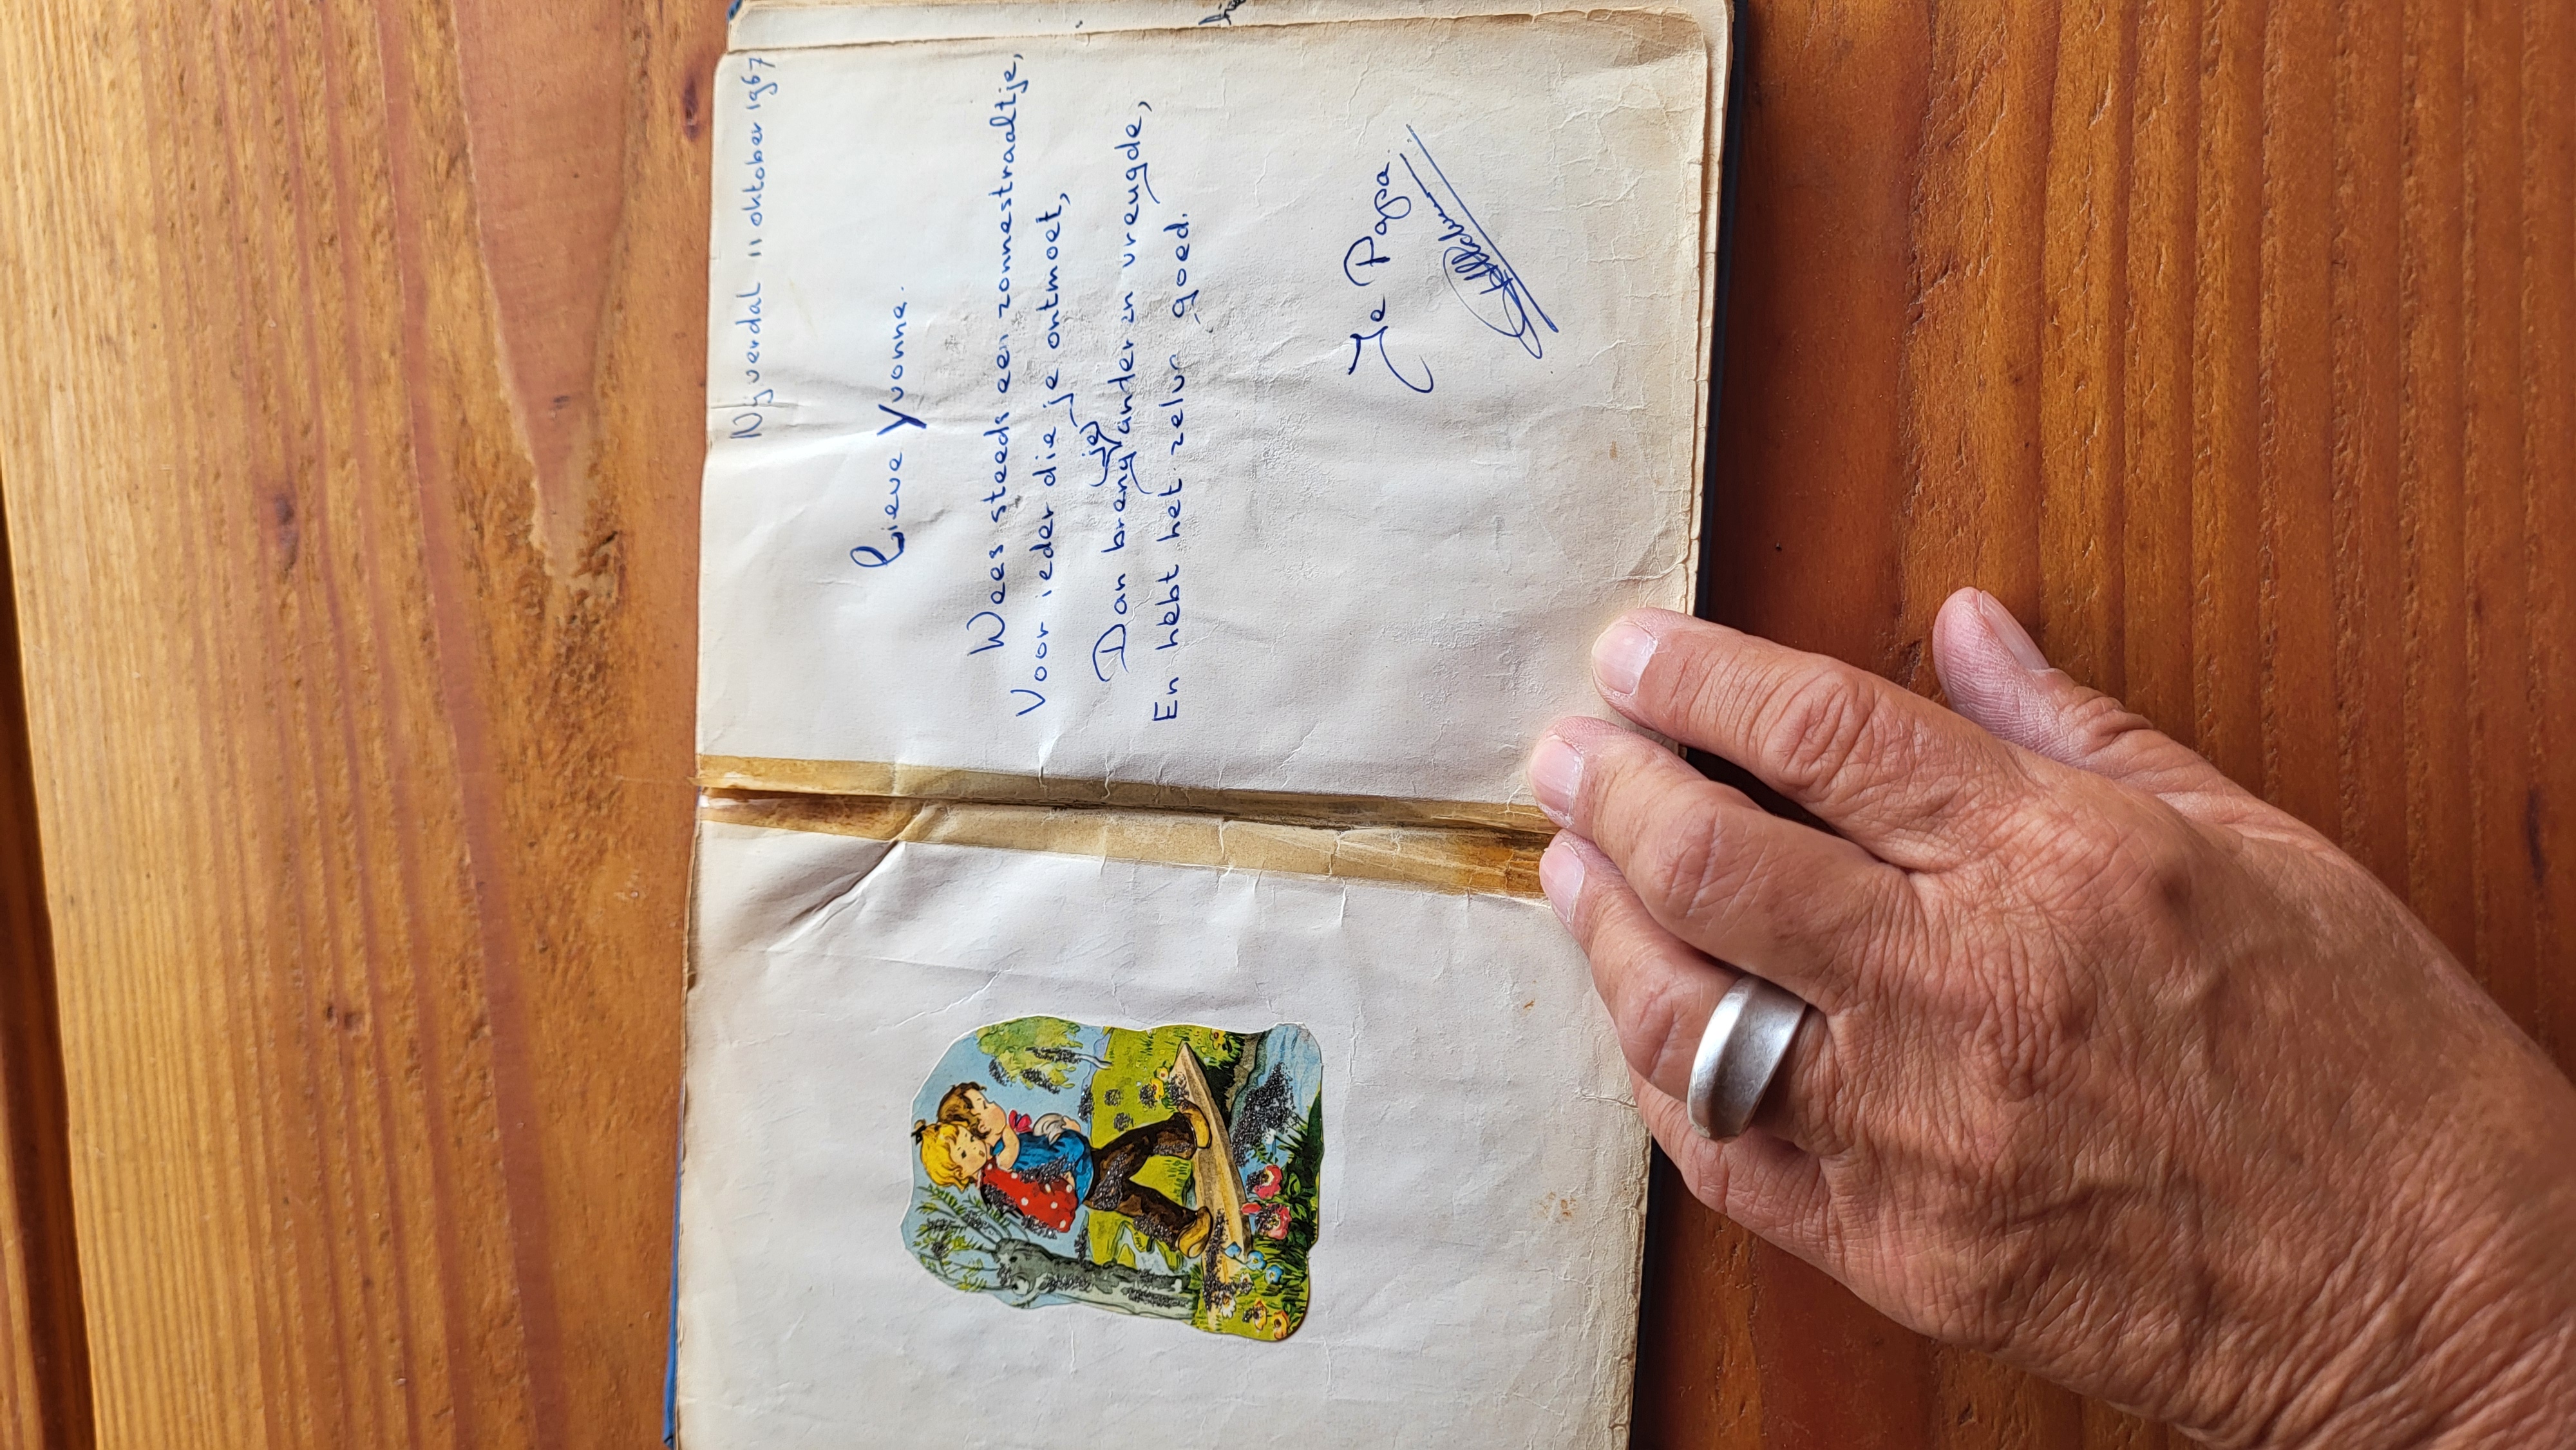 Nijverdal 11 oktober 1967
Lieve Yvonne.
Wees steeds een zonnestraaltje,
Voor ieder die je ontmoet,
Dan breng (je) anderen vreugde,
En hebt het zelve goed.
Je Papa.